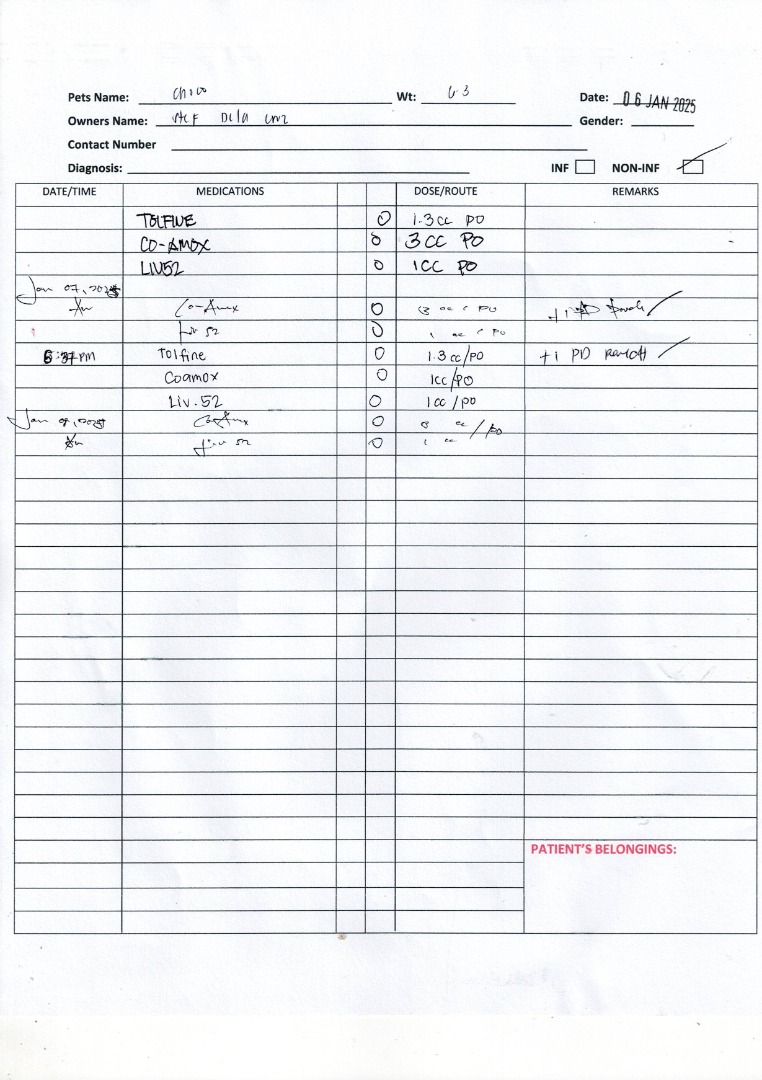 Pets Name: Chico Wt: 6.3 Date: 06 JAN 2025
Owners Name: Dela Cruz Gender:
Contact Number
Diagnosis: INF NON-INF
DATE/TIME MEDICATIONS DOSE/ROUTE REMARKS
TOLFINE O 1.3 cc PO
CO-AMOX O 3 CC PO
LIV52 O 1CC PO
Jan 07, 2025
Am Co-Amox O 3 cc PO
Liv 52 O 1 cc PO
6:37 PM Tolfine O 1.3 cc/PO +1 PD
Coamox O 1cc/PO
Liv.52 O 1cc/PO
Jan 2025 Co-Amx O 3 cc /PO
Am Liv 52 O 1 cc
PATIENT'S BELONGINGS: